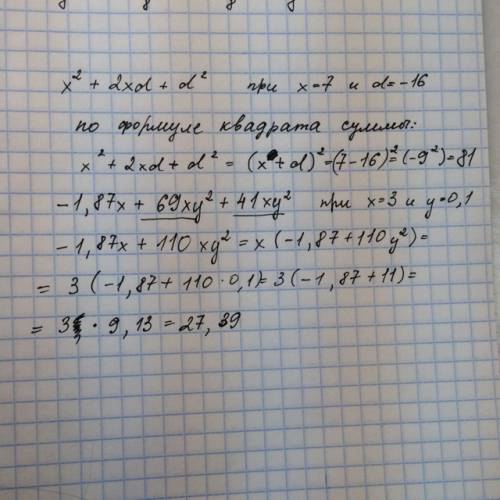 x² + 2xd + d² при x=7 и d=-16
по формуле квадрата суммы:
x² + 2xd + d² = (x + d)² = (7-16)² = (-9²) = 81
-1,87x + 69xy² + 41xy² при x=3 и y=0,1
-1,87x + 110 xy² = x (-1,87 + 110y²) =
= 3 (-1,87 + 110 · 0,1) = 3 (-1,87 + 11) =
= 3 · 9,13 = 27,39